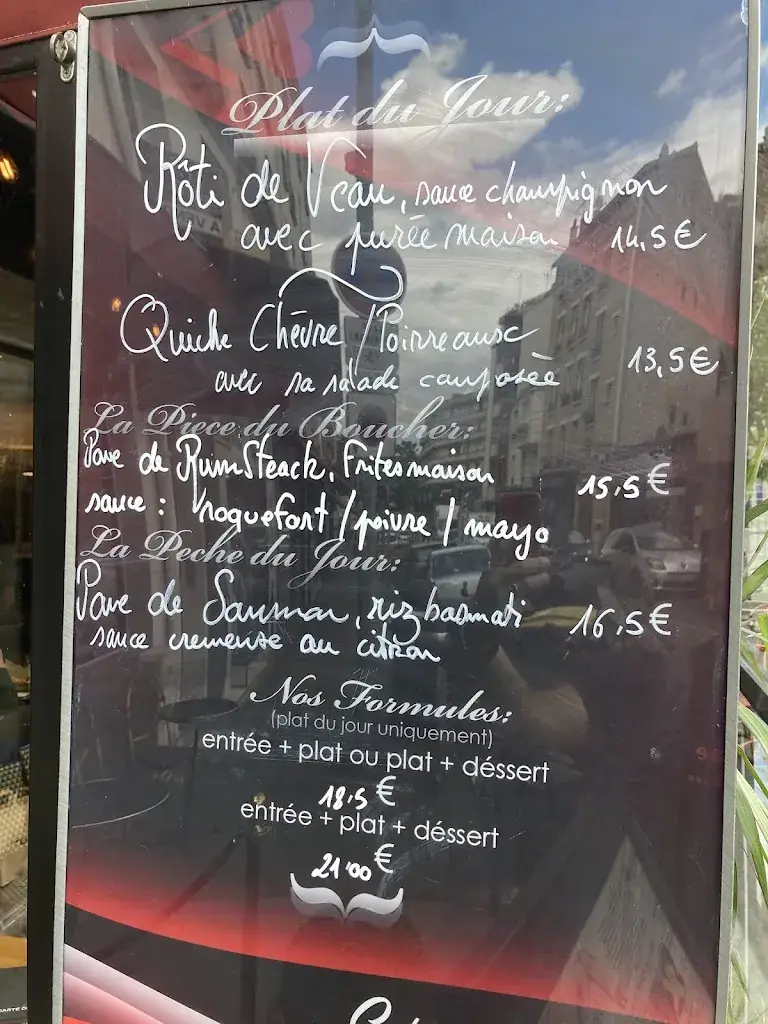 Plat du Jour:
Rôti de Veau, sauce champignon
avec purée maison 14,5€
Quiche Chèvre / Poirreaux
avec sa salade composée 13,5€
La Piece du Boucher:
Pave de RumSteack, frites maison
sauce : roquefort / poivre / mayo 15,5€
La Peche du Jour:
Pave de Saumon, riz basmati 16,5€
sauce cremeuse au citron
Nos Formules:
(plat du jour uniquement)
entrée + plat ou plat + déssert
18,5€
entrée + plat + déssert
21'00€